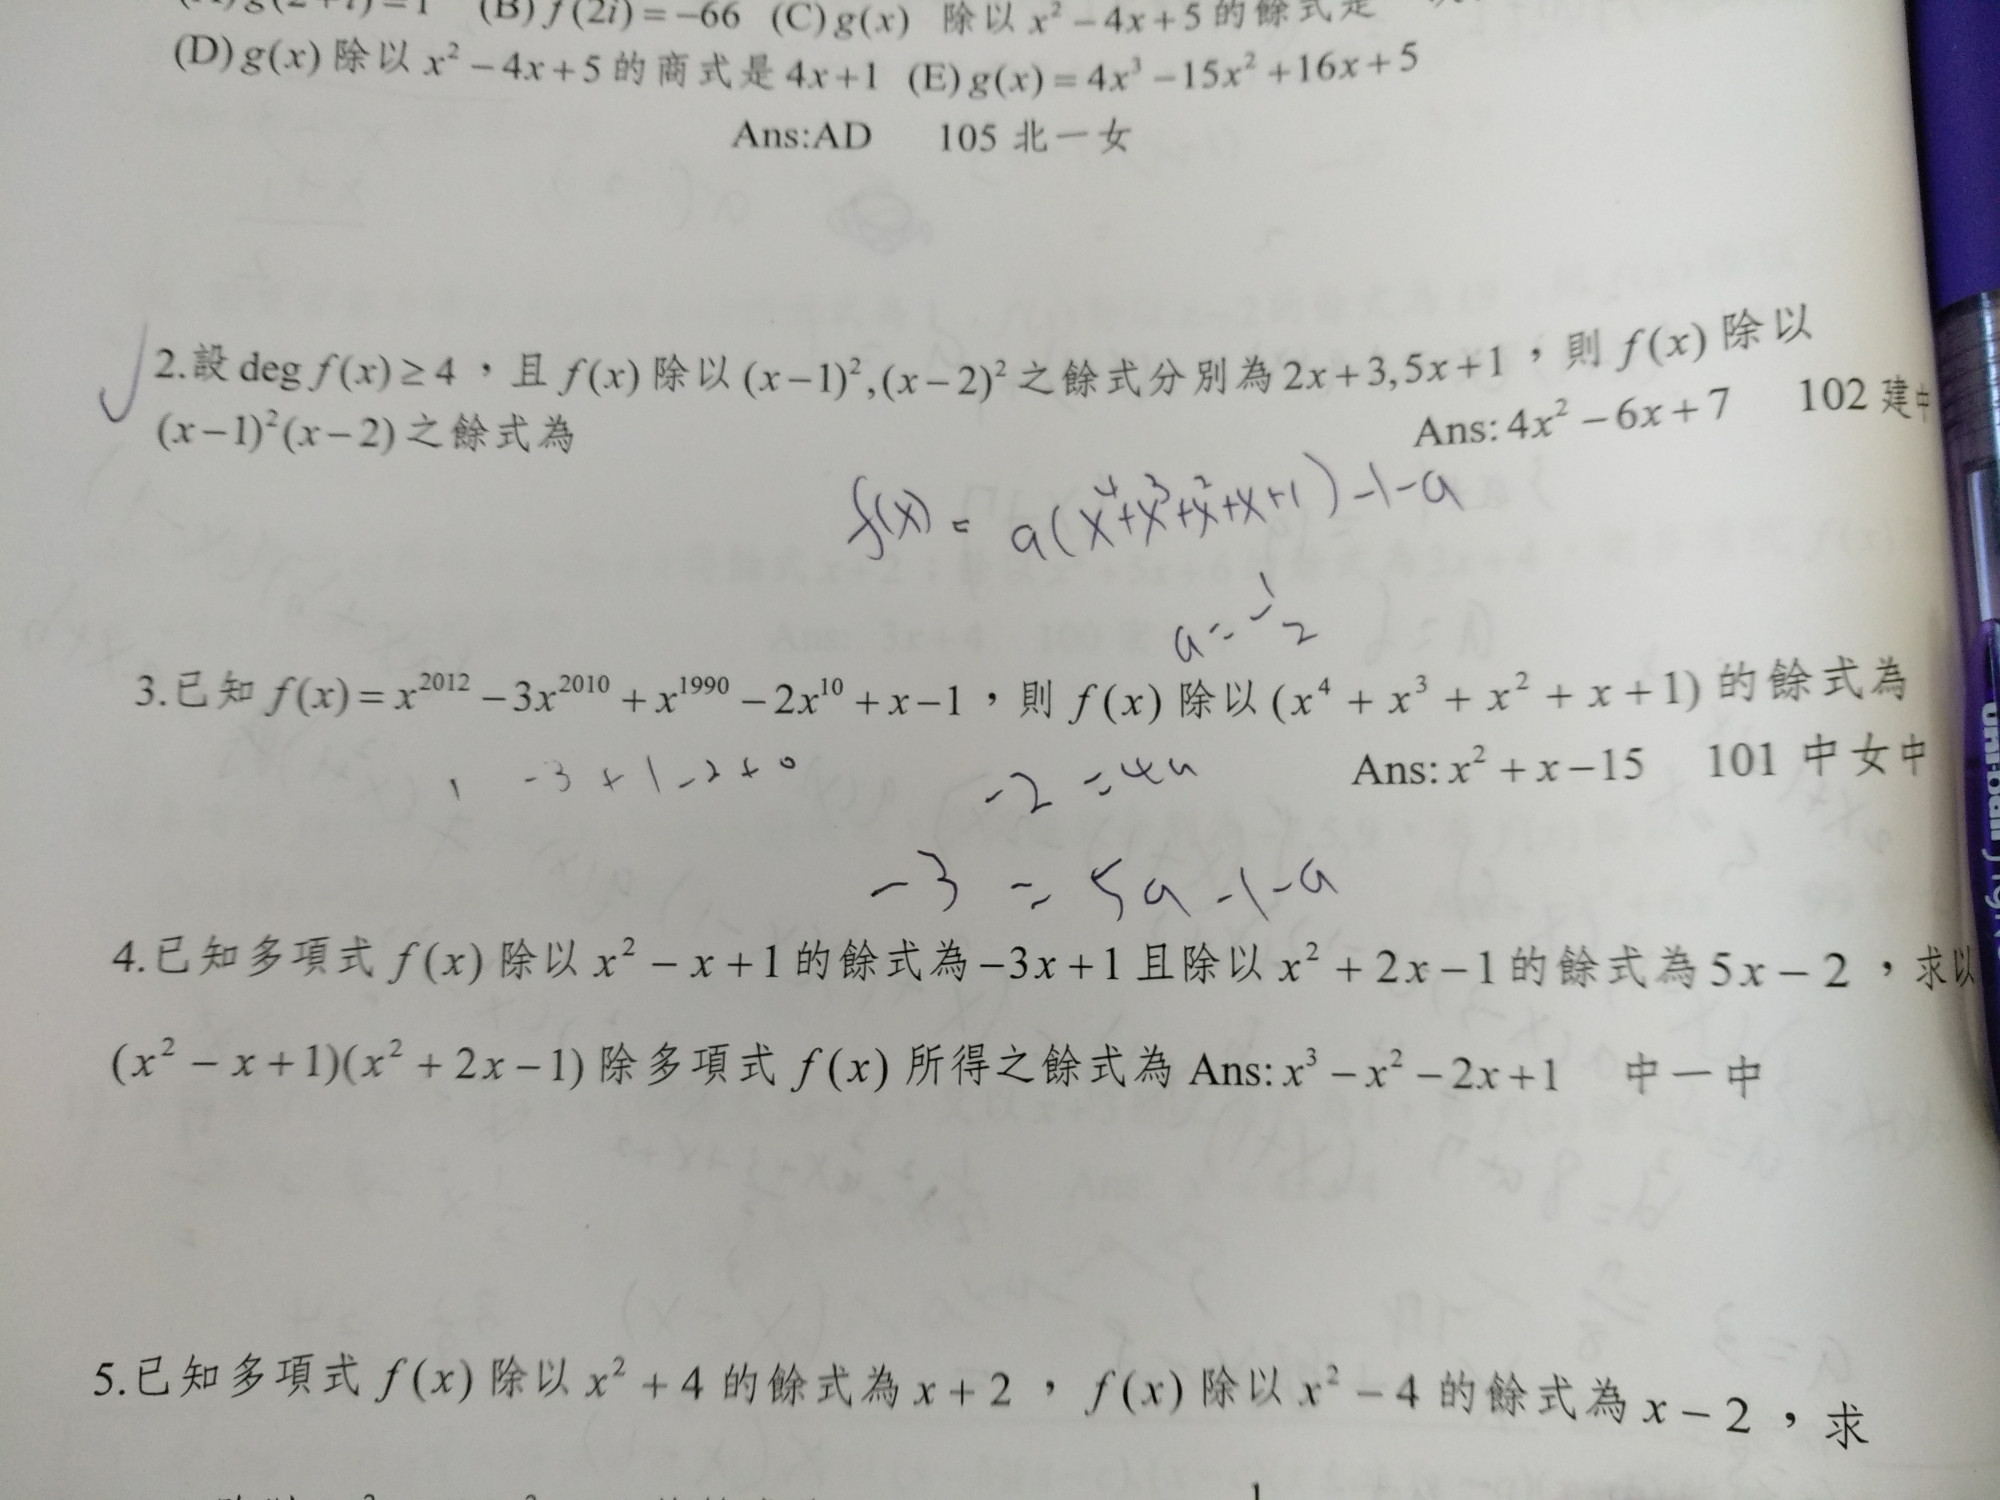 (B) f(2i) = −66 (C) g(x) 除以 x² − 4x + 5 的餘式是
(D) g(x) 除以 x² − 4x + 5 的商式是 4x + 1 (E) g(x) = 4x³ − 15x² + 16x + 5
Ans:AD 105 北一女
2.設 deg f(x) ≥ 4，且 f(x) 除以 (x−1)²,(x−2)² 之餘式分別為 2x+3,5x+1，則 f(x) 除以
(x−1)²(x−2) 之餘式為 Ans: 4x² − 6x + 7 102 建中
f(x) = a(x⁴+x³+x²+x+1) −1−a
a = −1/2
3.已知 f(x) = x²⁰¹² − 3x²⁰¹⁰ + x¹⁹⁹⁰ − 2x¹⁰ + x − 1，則 f(x) 除以 (x⁴ + x³ + x² + x + 1) 的餘式為
1 −3 + 1 −2 + 0 −2 = 4a Ans: x² + x − 15 101 中女中
−3 = 5a −1−a
4.已知多項式 f(x) 除以 x² − x + 1 的餘式為 −3x + 1 且除以 x² + 2x − 1 的餘式為 5x − 2，求以
(x² − x + 1)(x² + 2x − 1) 除多項式 f(x) 所得之餘式為 Ans: x³ − x² − 2x + 1 中一中
5.已知多項式 f(x) 除以 x² + 4 的餘式為 x + 2，f(x) 除以 x² − 4 的餘式為 x − 2，求